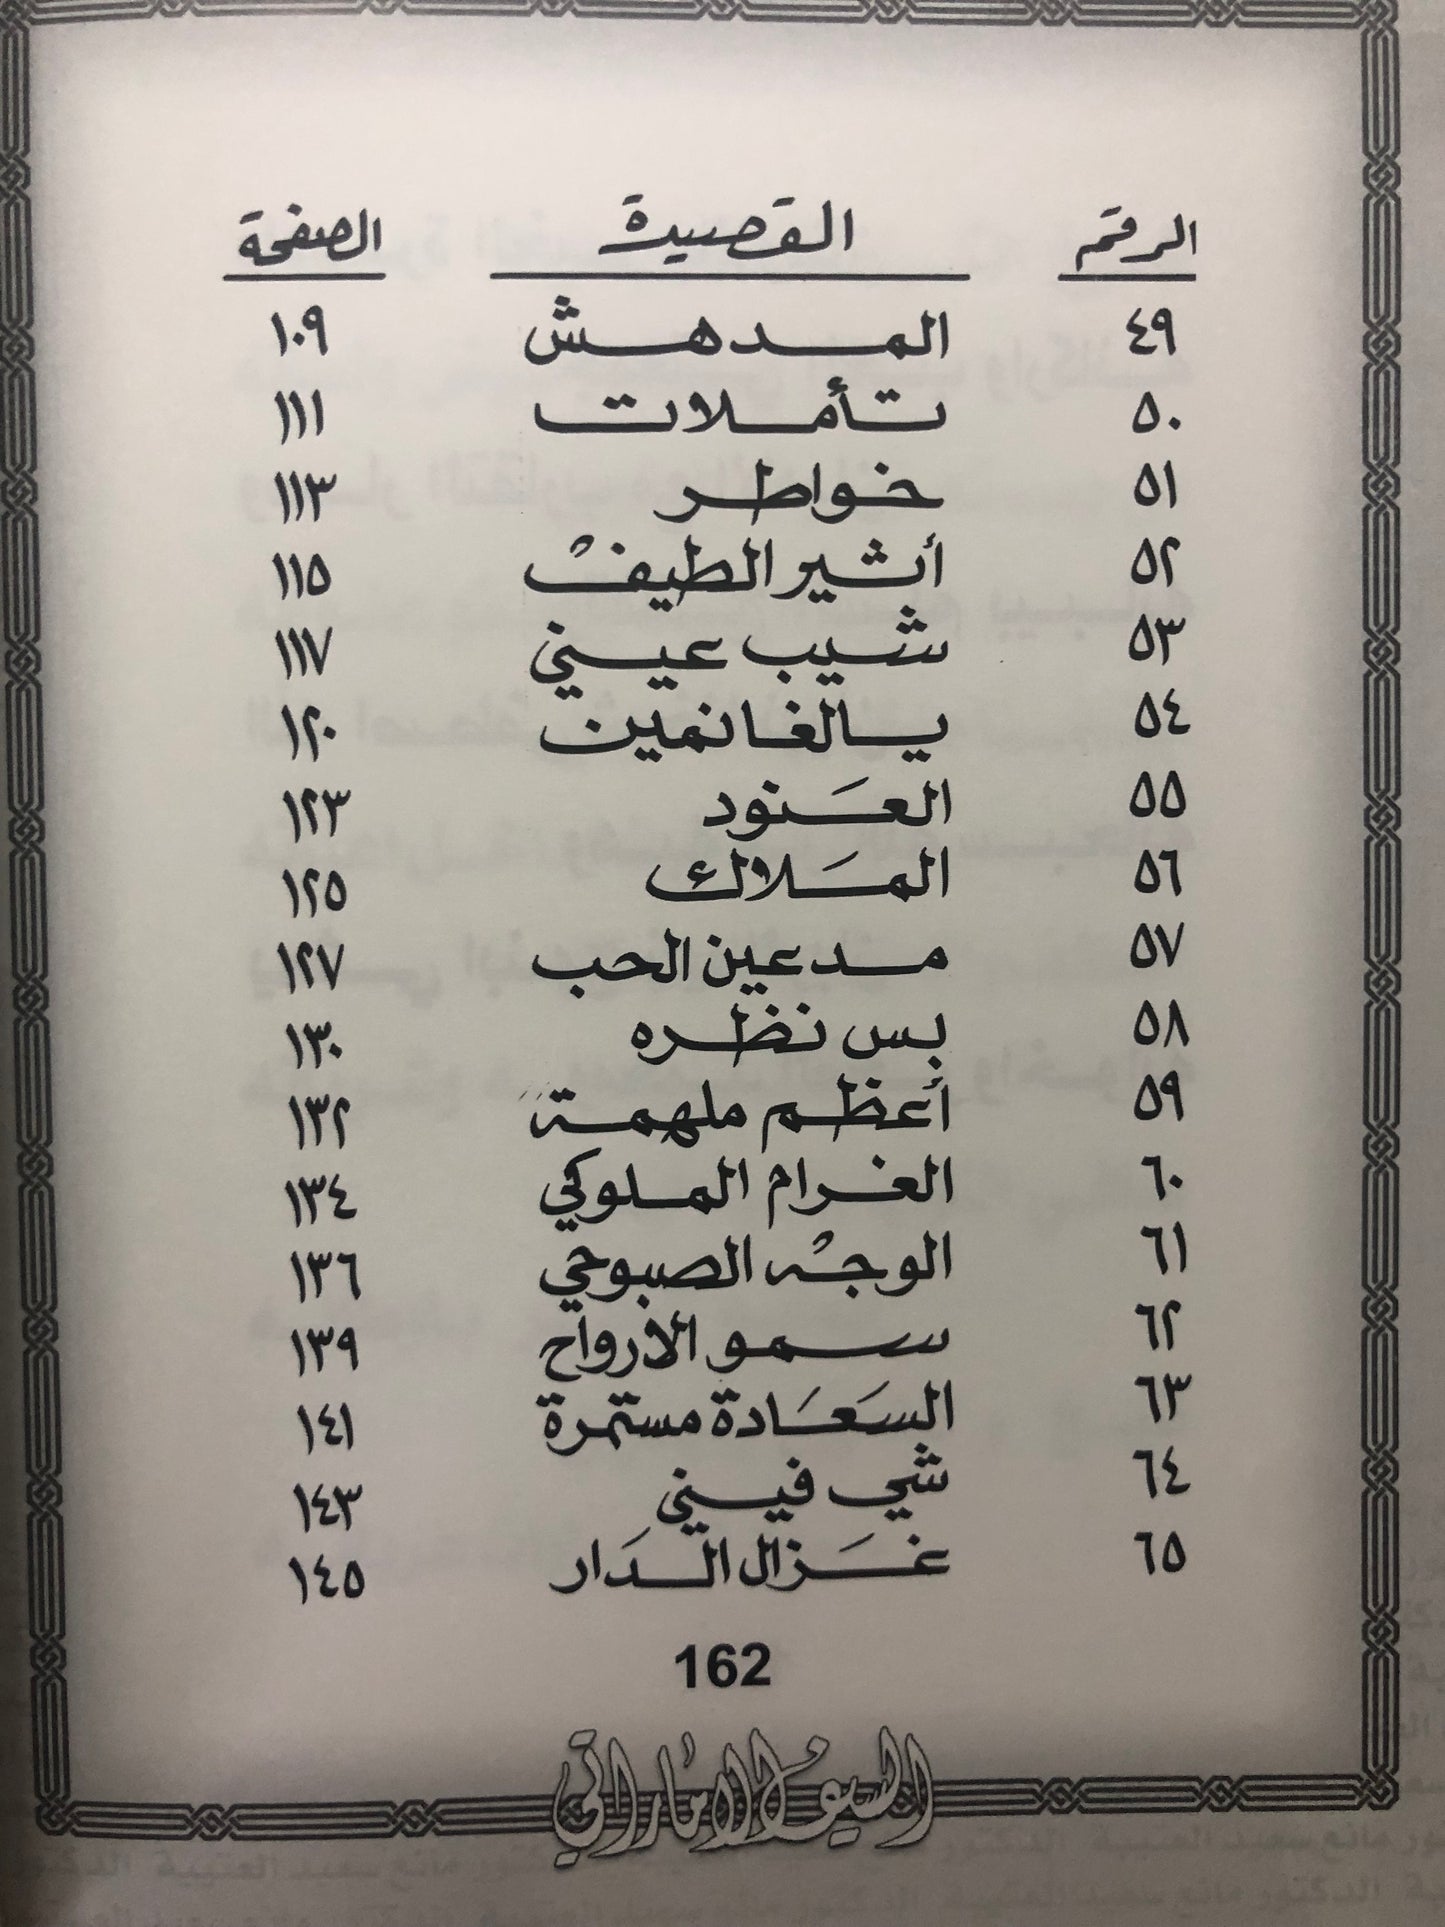 الرقم القصيدة الصفحة
٤٩ المدهش ١٠٩
٥٠ تأملات ١١١
٥١ خواطر ١١٣
٥٢ أثير الطيفْ ١١٥
٥٣ شيب عيني ١١٧
٥٤ يالغانمين ١٢٠
٥٥ العَنود ١٢٣
٥٦ المَلاك ١٢٥
٥٧ مدعين الحب ١٢٧
٥٨ بس نظره ١٣٠
٥٩ أعظم ملهمة ١٣٢
٦٠ الغرام الملوكي ١٣٤
٦١ الوجْه الصبوحي ١٣٦
٦٢ سمو الأرواح ١٣٩
٦٣ السَعَادة مستمرة ١٤١
٦٤ شي فيني ١٤٣
٦٥ غَزال الدَار ١٤٥
162
السيف الاماراتي